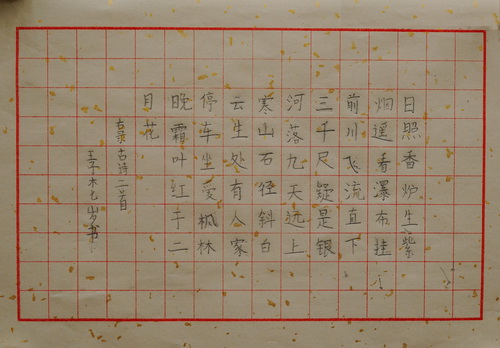 日照香炉生紫
烟遥看瀑布挂
前川飞流直下
三千尺疑是银
河落九天远上
寒山石径斜白
云生处有人家
停车坐爱枫林
晚霜叶红于二
月花
录古诗二首
李木七岁书